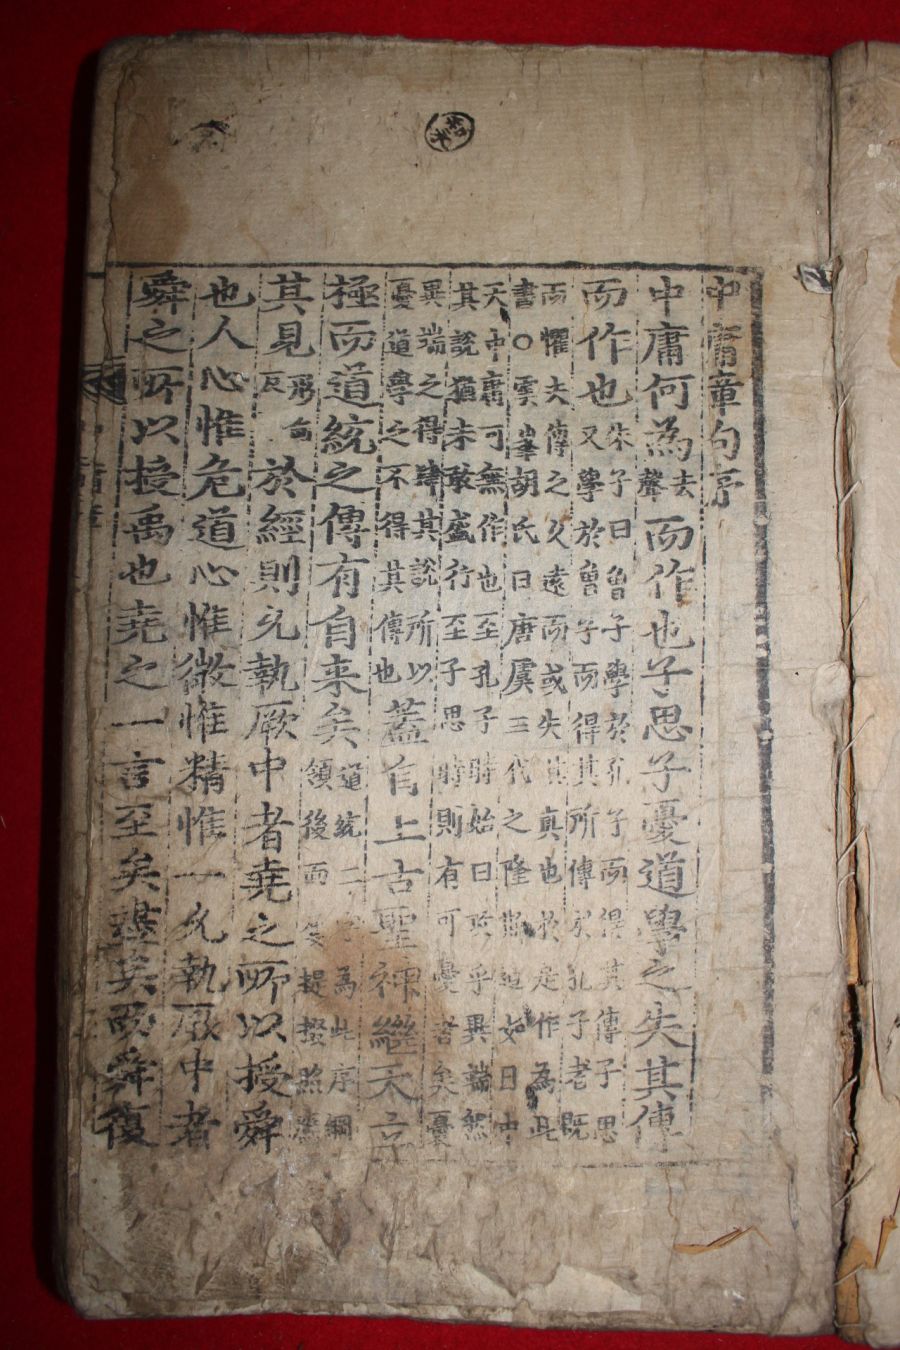 中庸章句序
中庸何為去聲而作也子思子憂道學之失其傳
而作也朱子曰曾子學於孔子而得其傳子思
又學於曾子而得其所傳於孔子者既
而懼夫傳之久遠而或失其真也於是作為此
書○雲峯胡氏曰唐虞三代之隆斯道如日中
天中庸可無作也至孔子時始曰攻乎異端然
其說猶未敢盛行至子思時則有可憂者矣憂
異端之得肆其說所以
憂道學之不得其傳也蓋自上古聖神繼天立
極而道統之傳有自来矣道統二字為此序綱
領後面屢提掇照應
其見形甸反於經則允執厥中者堯之所以授舜
也人心惟危道心惟微惟精惟一允執厥中者
舜之所以授禹也堯之一言至矣盡矣而舜復